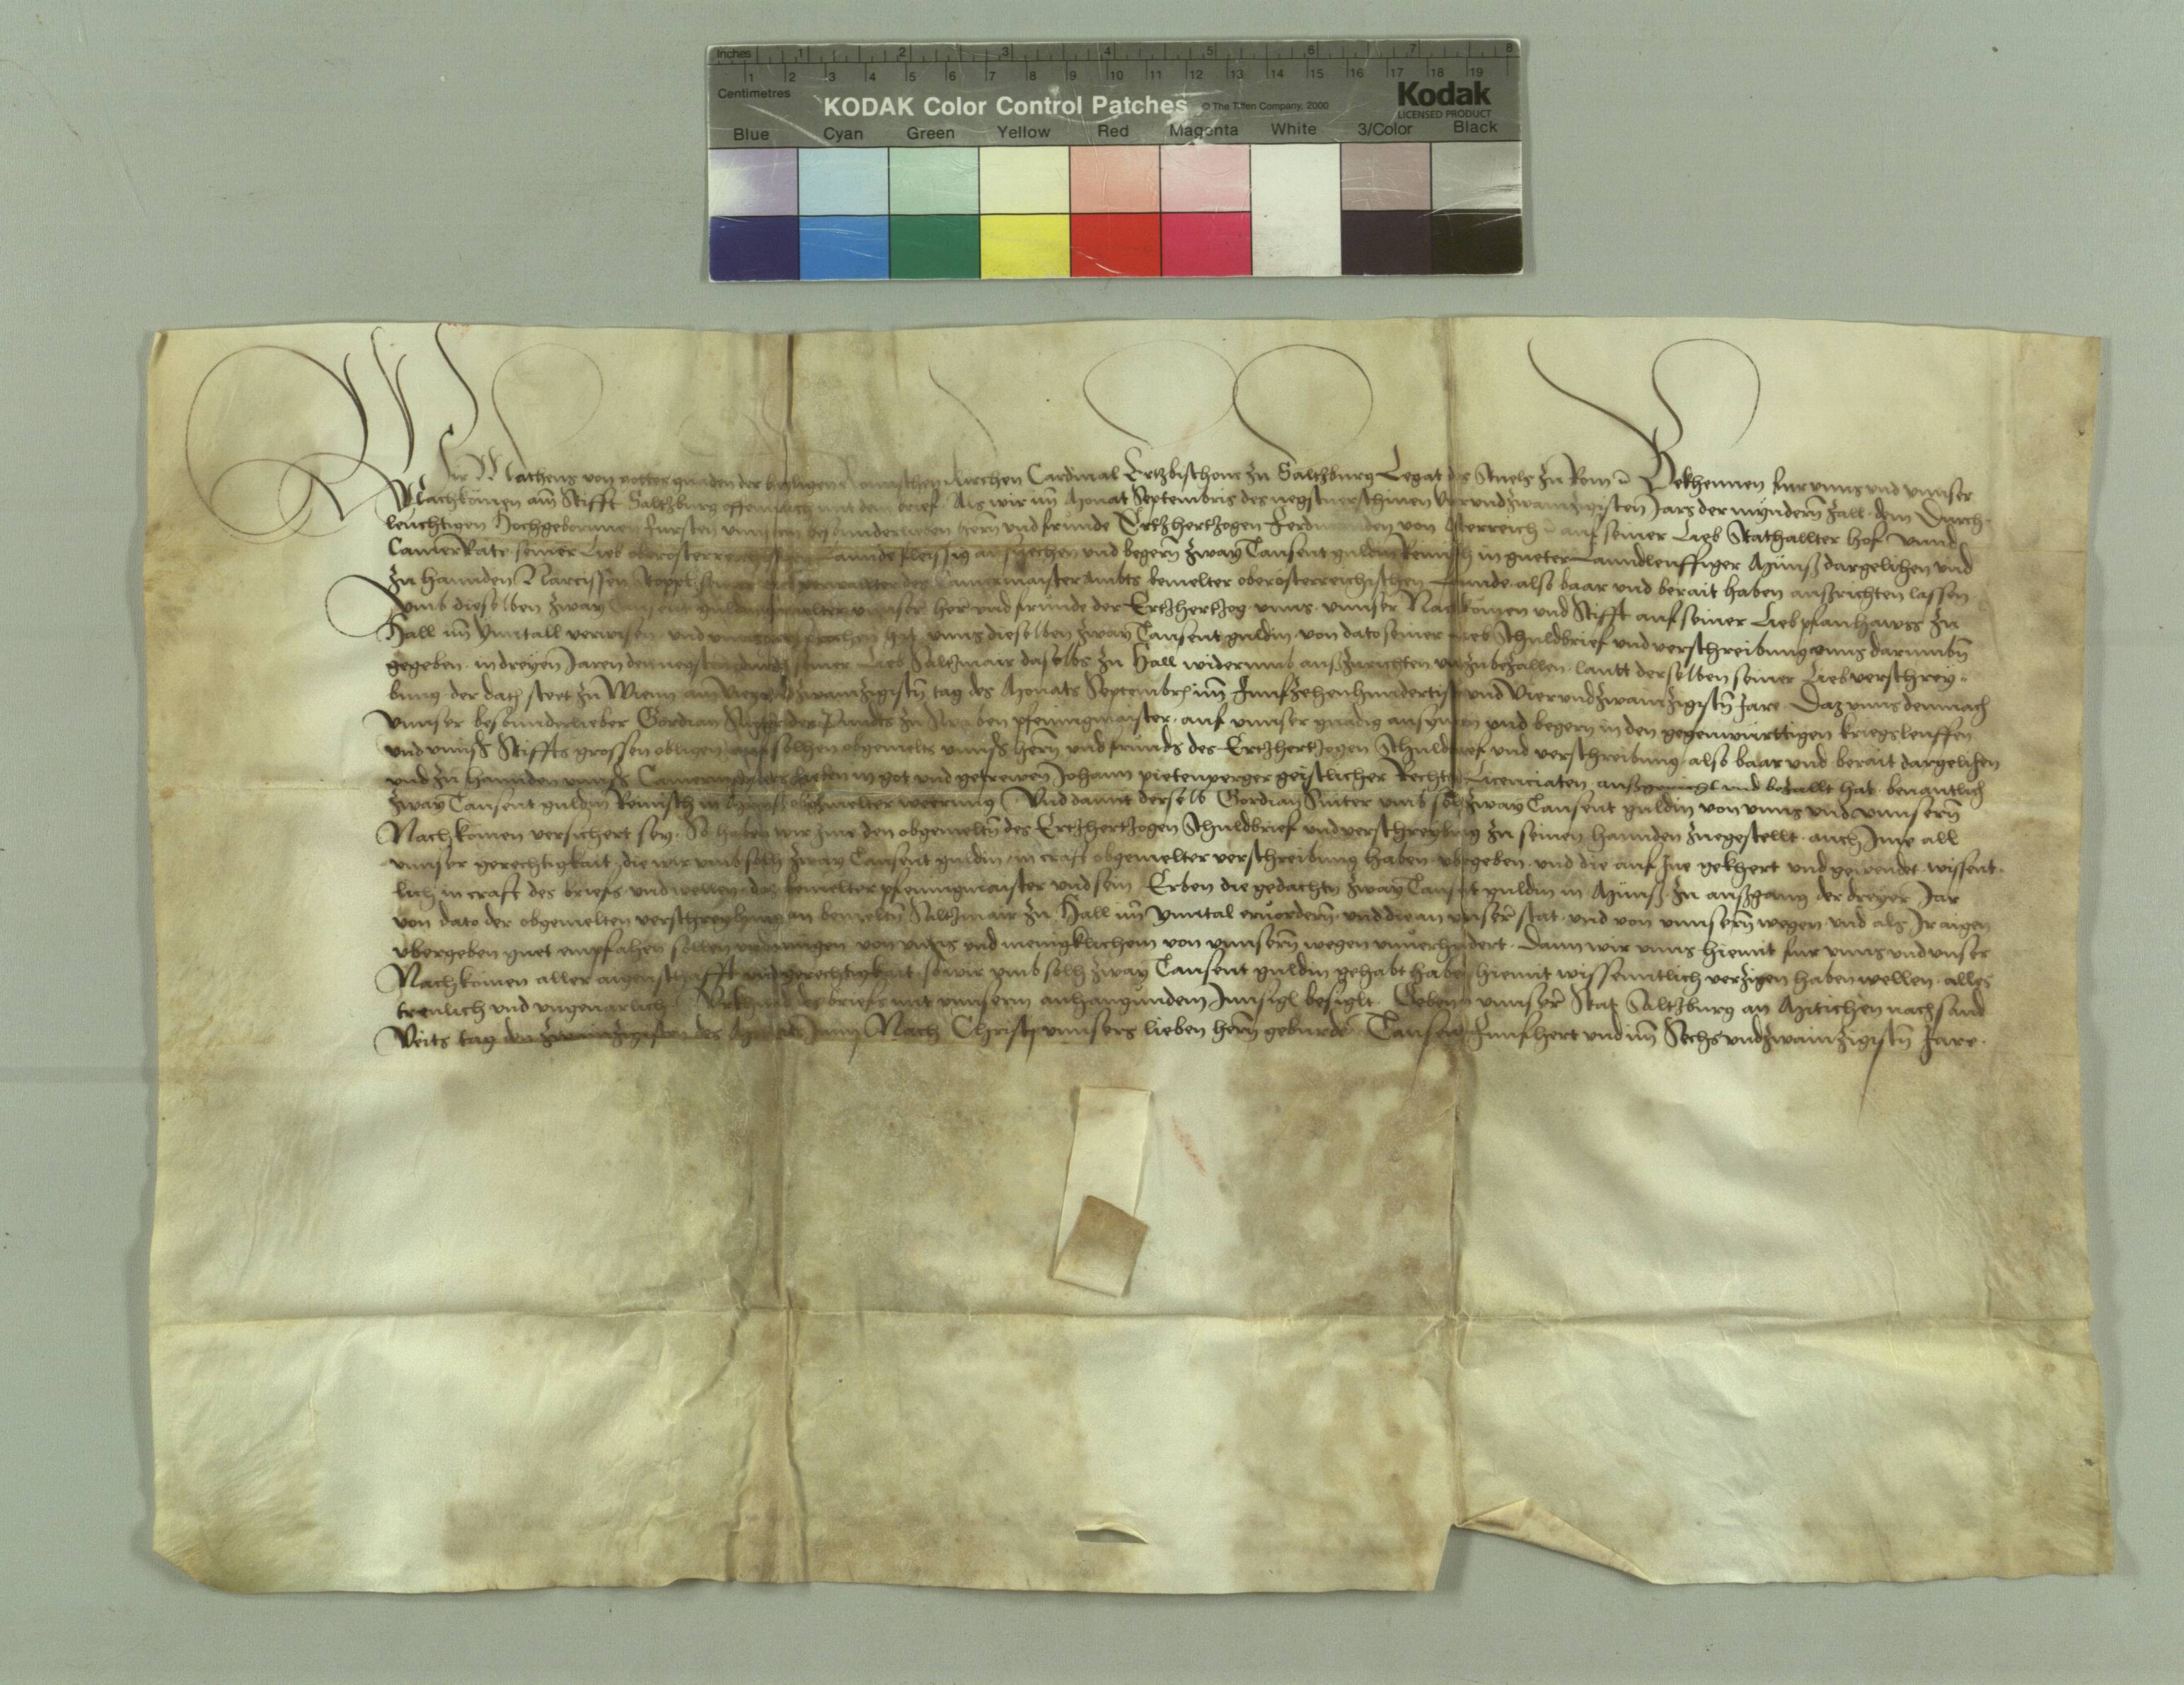 Inches 1 2 3 4 5 6 7 8
1 2 3 4 5 6 7 8 9 10 11 12 13 14 15 16 17 18 19
Centimetres
KODAK Color Control Patches © The Tiffen Company, 2000 Kodak
LICENSED PRODUCT
Blue Cyan Green Yellow Red Magenta White 3/Color Black
Wir Matheus von gottes gnaden der heyligen Romischen Kirchen Cardinal Ertzbischoue zu Saltzburg Legat des Stuels zu Rom Bekhennen fur unns und unnser
Nachkomen am Stifft Saltzburg offennlich mit dem brief. Als wir im Monat Septembris des negstuerschinen Vierundzwaintzigisten Jars der myndern zall. dem Durch-
leuchtigen Hochgebornnen Fursten unnserm besonnderlieben herrn und freunde Ertzhertzogen Ferdinannden von Osterreich auf seiner Lieb Stathallter hof unnd
Camer Räte seiner Lieb oberosterreichischen Lannde fleyssig ansuechen und begern zway Tausent guldin Reinisch in gueter Lanndleuffiger Münss dargelihen und
zu hannden Narcissen seiner Lieb verwallter des Camermaister Ambts bemelter oberosterreichischen Lannde. also baar und berait haben aussrichten lassen.
Umb dieselben zway Tausent guldin bemelter unnser herr und freunde der Ertzhertzog unns. unnser Nachkomen und Stifft auf seiner Lieb pfanhawss zu
Hall im Ynntall verwisen. und unns dieselben zway Tausent guldin. von dato seiner Lieb Schuldbrief und verschreibung unns darumben
gegeben. in dreyen Jaren den negsten durch seiner Lieb Saltzmair daselbs zu Hall widerumb ausszurichten und zubezallen. lautt derselben seiner Lieb verschrey-
bung. der datum steet zu Wienn am tag des Monats Septembris im Funfzehenhundertisten und Vierundzwaintzigisten Jare. Daz unns demnach
unnser besonnderlieber Gordian Suiter des Pundts zu Swaben pfenningmaister. auf unnser gnädig ansynnen und begern in den gegenwürttigen kriegsleuffen
und unnsers Stiffts grossen obligen auf solhen obgemelts unnsers herrn und freunds des Ertzhertzogen Schuldbrief und verschreibung. also baar und berait dargelihen
und zu hannden unnsers Camermaisters lieben in got und getrewen Johann pietenperger geistlicher Rechten Licenciaten, und bezallt hat. benantlich
zway Tausent guldin Reinisch in Münss obgemelter weerung. Und damit derselb Gordian Suiter umb solh zway Tausent guldin von unns und unnsern
Nachkomen versichert sey. So haben wir jme den obgemelten des Ertzhertzogen Schuldbrief und verschreybung zu seinen hannden zuegestellt. auch Ime all
unnser gerechtigkait, die wir umb solh zway Tausent guldin, in craft obgemelter verschreibung haben. ubergeben. und die auf Jne gekhert und gewendet. wissent-
lich in craft des briefs. und wellen. daz bemelter pfenningmaister und sein Erben die gedachten zway Tausent guldin in Münss. zu aussgang der dreyer Jar
von dato der obgemelten verschreybung an bemelten Saltzmair zu Hall im Ynntal eruordern. und die an unnser stat. und von unnsern wegen und als Jr aigen
ubergeben guet empfahen sollen und mügen von unns und menigklichem von unnsern wegen unuerhindert. Dann wir unns hiemit fur unns und unnser
Nachkomen aller aigenschafft und gerechtigkait. so wir umb solh zway Tausent guldin gehabt haben hiemit wissenntlich verzigen haben wellen. alles
trewlich und ungeuarlich. Urkhund des briefs mit unnserm anhangunden Innsigl besiglt. Geben in unnser Stat Saltzburg an Mitichen nach sand
Veits tag den zwaintzigisten des Monats Juny Nach Christi unnsers lieben herrn geburde Tausent Funfhundert und im Sechsundzwaintzigisten Jare.